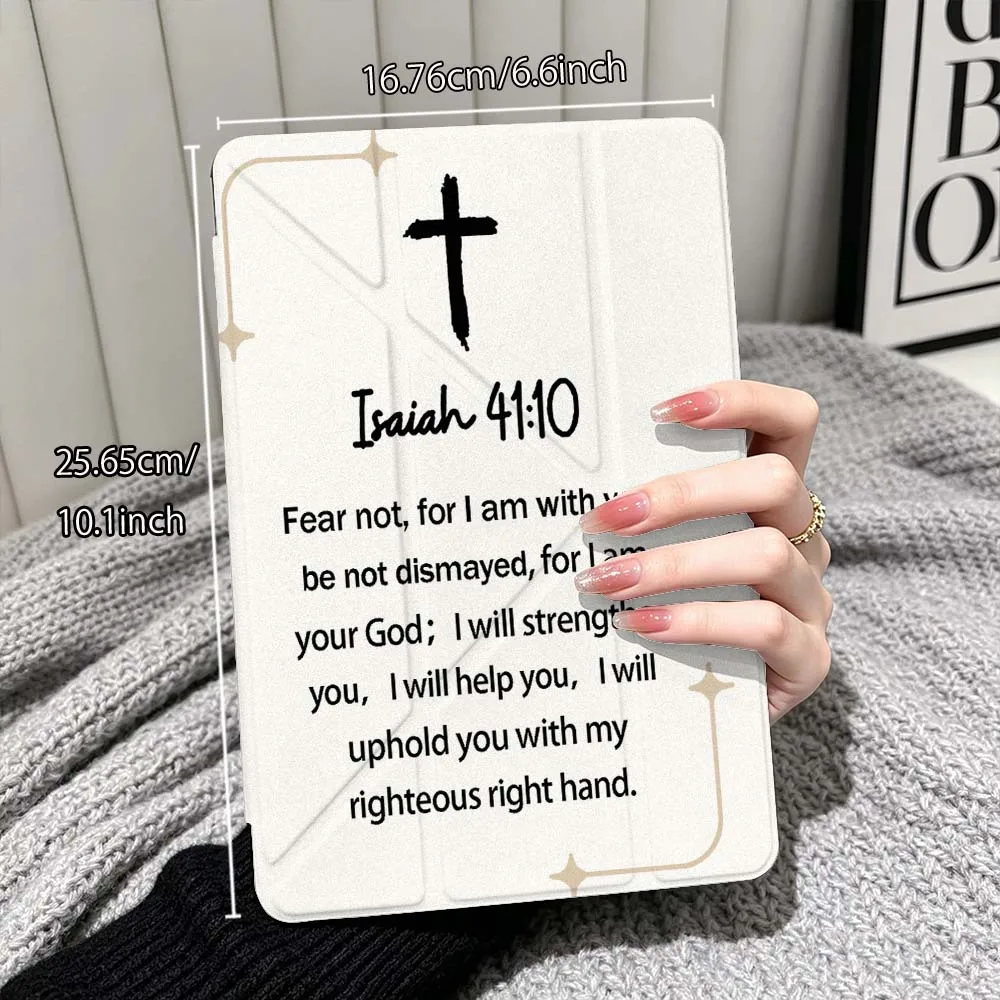 16.76cm/6.6inch
25.65cm/
10.1inch
Isaiah 41:10
Fear not, for I am with
be not dismayed, for I am
your God; I will
you, I will help you, I will
uphold you with my
righteous right hand.
B